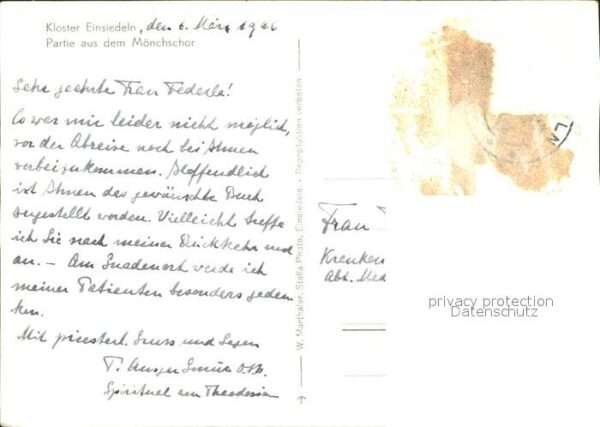 Kloster Einsiedeln, den 6. März 1946
Partie aus dem Mönchschor
Sehr geehrte Frau Federle!
Es war mir leider nicht möglich,
vor der Abreise noch bei Ihnen
vorbeizukommen. Hoffendlich
ist Ihnen das gewünschte Buch
zugestellt worden. Vielleicht treffe
ich Sie nach meiner Rückkehr noch
an. – Am Gnadenort werde ich
meiner Patienten besonders geden-
ken.
Mit priesterl. Gruss und Segen
P.
Spiritual am Theodosia
W. Marthaler, Stella Photo, Einsiedeln - Reproduktion verboten
Frau
Kranken
Abt. Med
privacy protection
Datenschutz